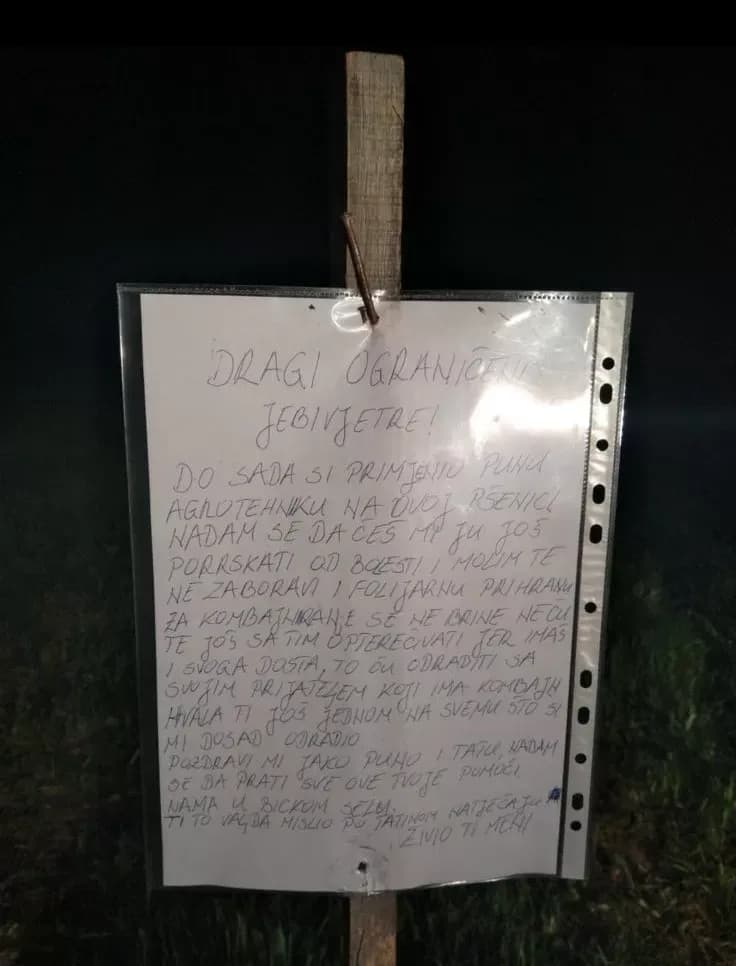 DRAGI OGRANIČENI
JEBIVJETRE!
DO SADA SI PRIMJENIO PUNU
AGROTEHNIKU NA OVOJ PŠENICI
NADAM SE DA ĆEŠ MI JU JOŠ
PORRSKATI OD BOLESTI I MOLIM TE
NE ZABORAVI I FOLIJARNU PRIHRANU
ZA KOMBAJNIRANJE SE NE BRINE NEĆU
TE JOŠ SA TIM OPTEREĆIVATI JER IMAŠ
I SVOGA DOSTA, TO ĆU ODRADITI SA
SVOJIM PRIJATELJEM KOJI IMA KOMBAJN
HVALA TI JOŠ JEDNOM NA SVEMU ŠTO SI
MI DOSAD ODRADIO
POZDRAVI MI JAKO PUNO I TATU, NADAM
SE DA PRATI SVE OVE TVOJE POMOĆI
NAMA U BICKOM SELU.
TI TO VALJDA MISLIO PO TATINOM NATJEČAJU
ŽIVIO TI MENI